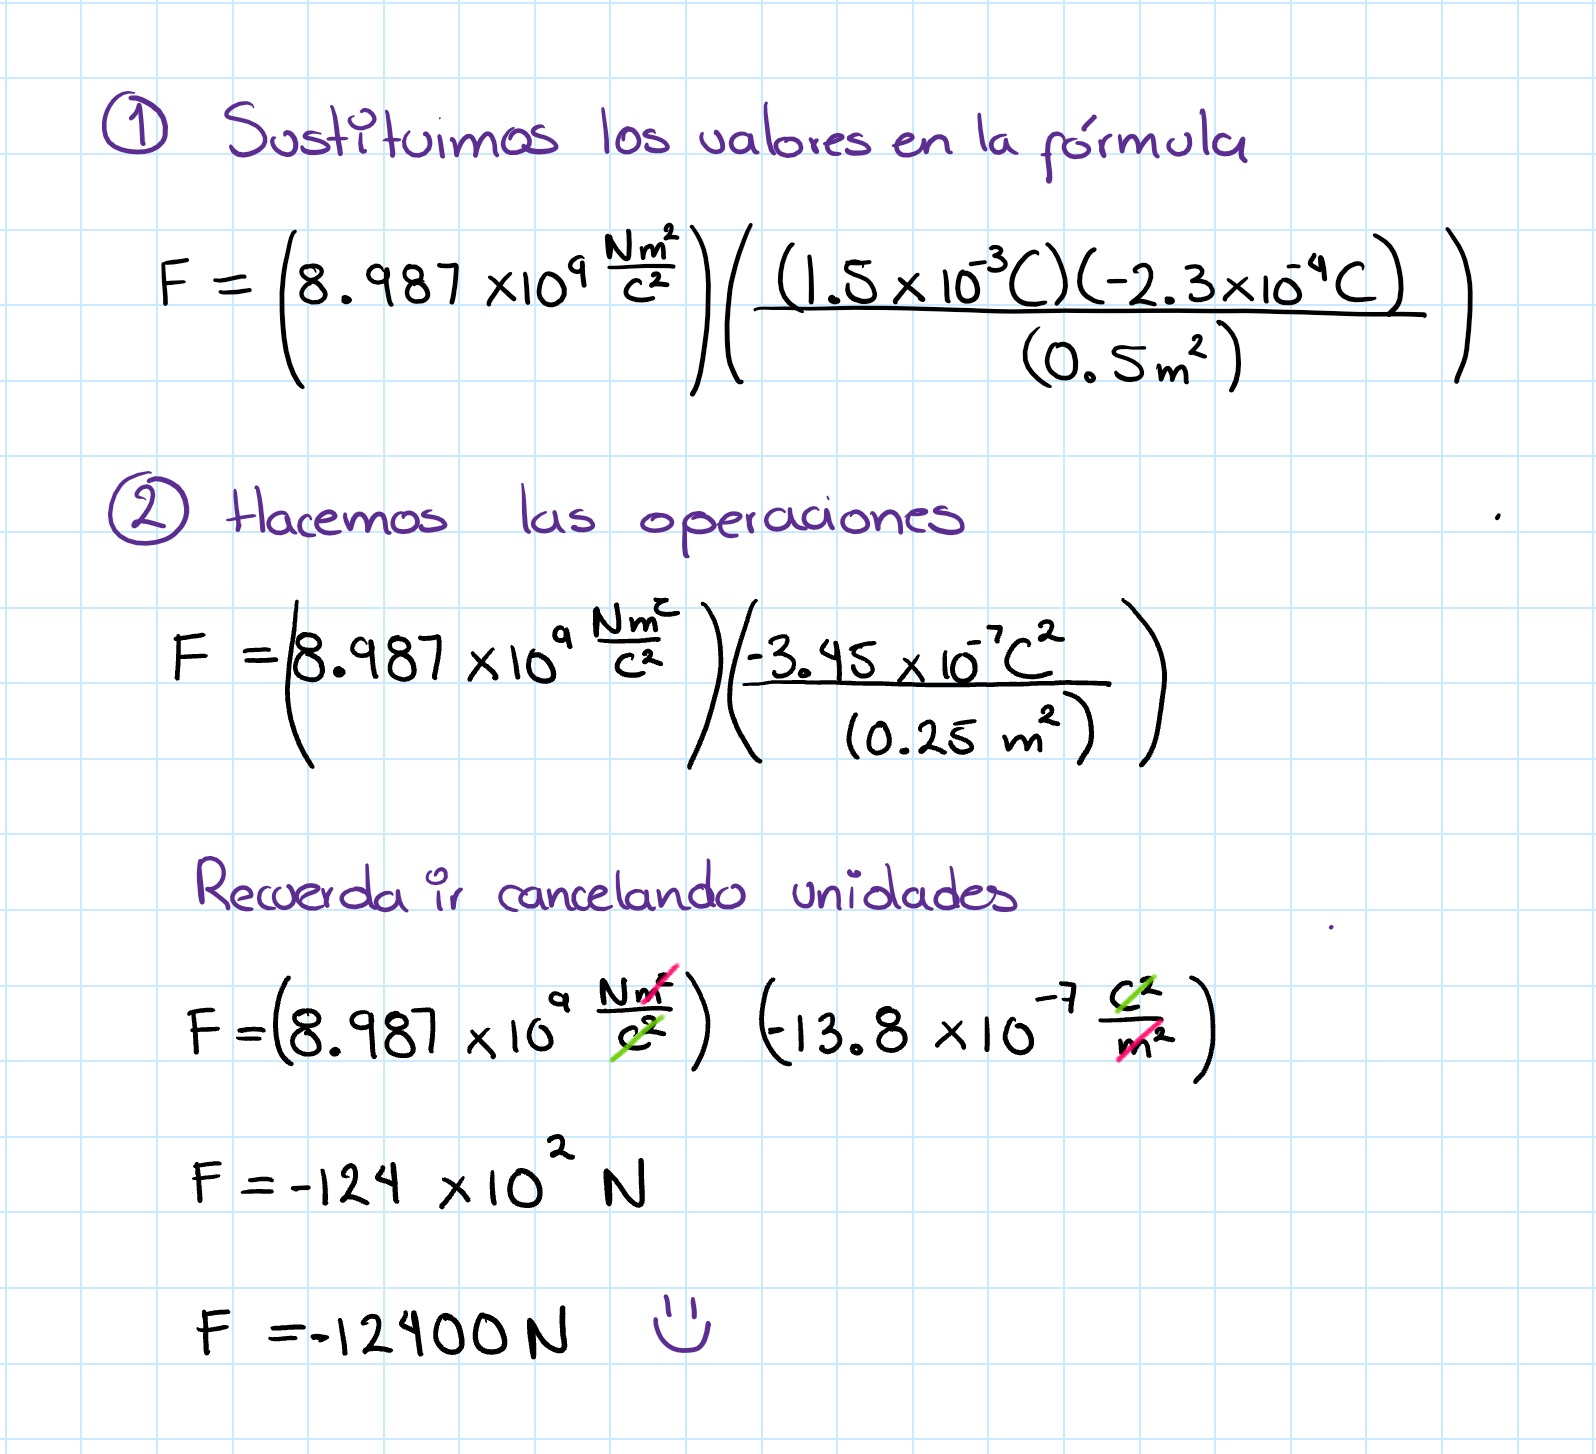 ① Sustituimos los valores en la fórmula
F = (8.987 x10⁹ Nm²/C²) ((1.5 x 10⁻³C)(-2.3x10⁻⁴C) / (0.5m²))
② Hacemos las operaciones
F = (8.987 x10⁹ Nm²/C²) (-3.45 x 10⁻⁷C² / (0.25 m²))
Recuerda ir cancelando unidades
F = (8.987 x10⁹ Nm²/C²) (-13.8 x10⁻⁷ C²/m²)
F = -124 x10² N
F = -12400 N